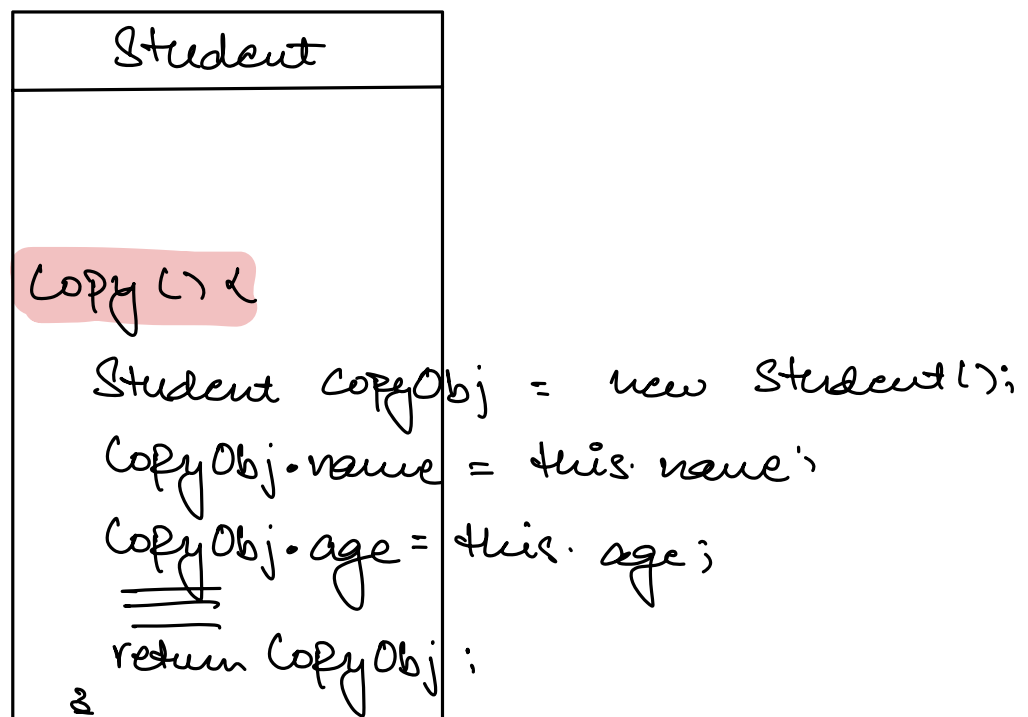 Student
Copy() {
Student copyObj = new Student();
CopyObj.name = this.name;
CopyObj.age = this.age;
return CopyObj;
}